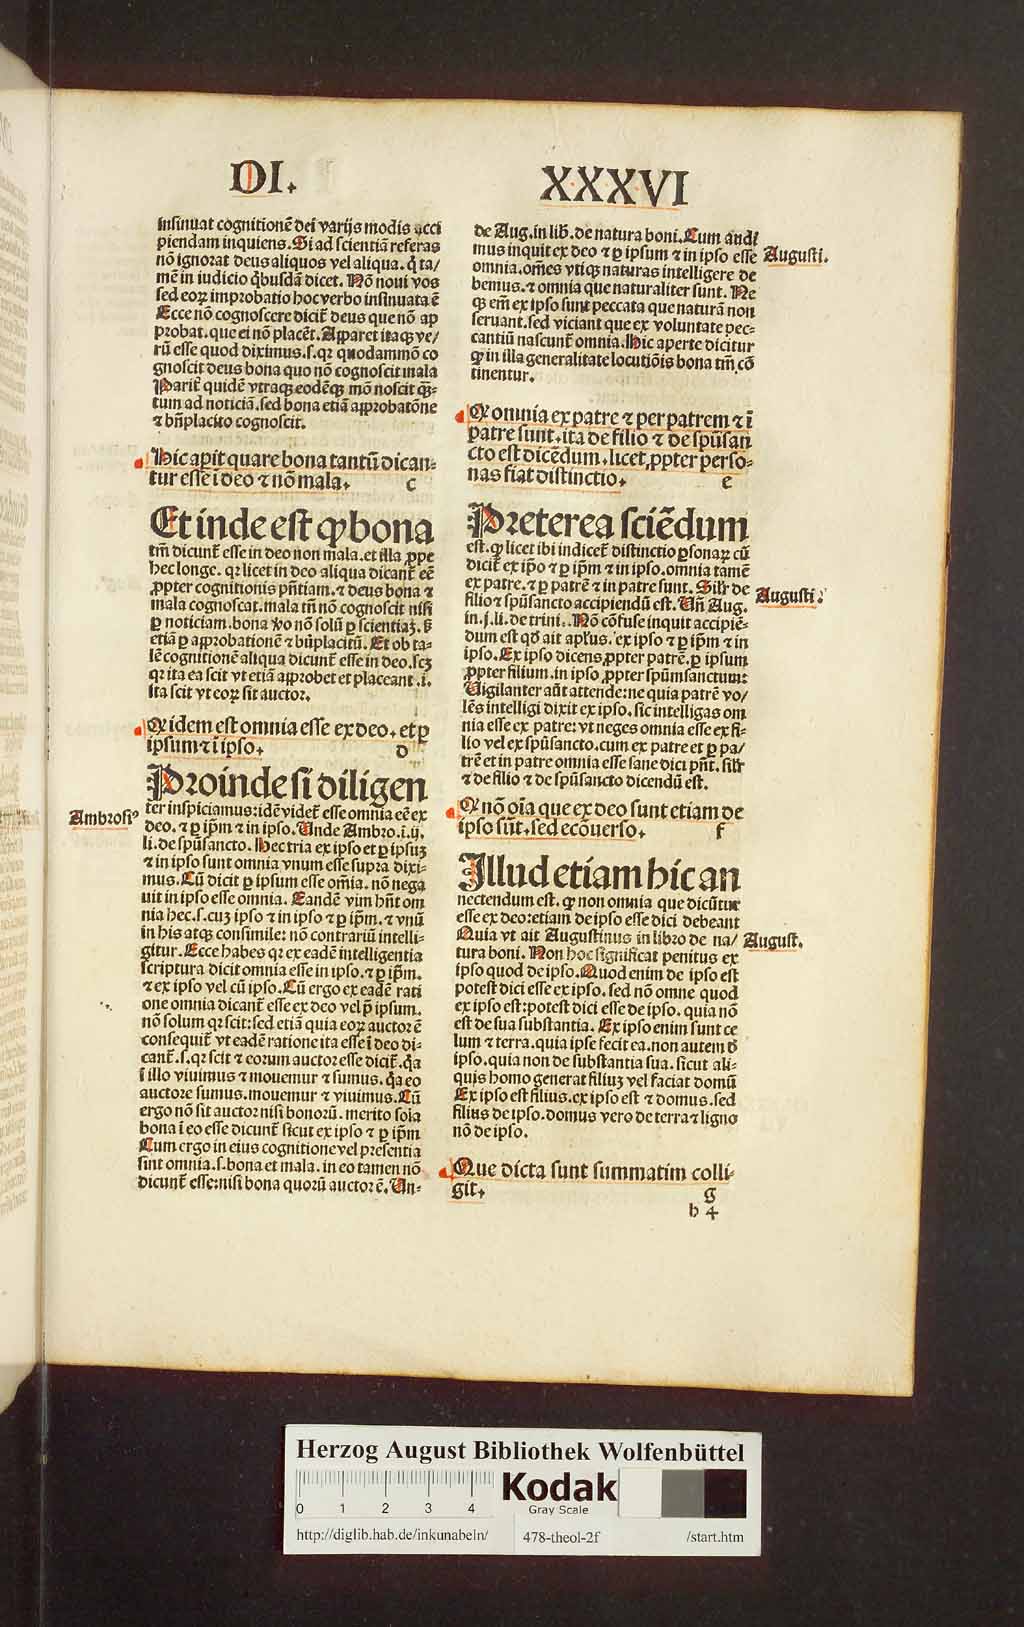 DI. XXXVI
insinuat cognitionē dei varijs modis acci
piendam inquiens. Si ad scientiā referas
nō ignorat deus aliquos vel aliqua. q̄ ta/
mē in iudicio q̇busdā dicet. Nō noui vos
sed eoꝝ improbatio hoc verbo insinuata ē
Ecce nō cognoscere dicit̄ deus que nō ap
probat. que ei nō placēt. Apparet itaqꝫ ve/
rū esse quod diximus. s. qꝛ quodammō co
gnoscit deus bona quo nō cognoscit mala
Parit̄ quidē vtraqꝫ eodēqꝫ mō noscit q̄⸗
tum ad noticiā. sed bona etiā approbatōne
⁊ bn̄placito cognoscit.
Hic aꝑit quare bona tantū dican⸗
tur esse ī deo ⁊ nō mala. c
Et inde est ꝙ bona
tm̄ dicunt̄ esse in deo non mala. et illa ꝓpe
hec longe. qꝛ licet in deo aliqua dicant̄ eē
ꝓpter cognitionis pn̄tiam. ⁊ deus bona ⁊
mala cognoscat. mala tn̄ nō cognoscit nisi
ꝑ noticiam. bona ꝟo nō solū ꝑ scientiaꝫ. ſꝫ
etiā ꝑ approbationē ⁊ bn̄placitū. Et ob ta⸗
lē cognitionē aliqua dicunt̄ esse in deo. scꝫ
qꝛ ita ea scit vt etiā approbet et placeant .i.
ita scit vt eoꝝ sit auctor.
Q idem est omnia esse ex deo. et ꝑ
ipsum ⁊ ī ipso. d
Proinde si diligen
Ambrosiꝰ
ter inspiciamus: idē videt̄ esse omnia eē ex
deo. ⁊ ꝑ ip̄m ⁊ in ipso. Unde Ambro. i. ij.
li. de spūsancto. Hec tria ex ipso et ꝑ ipsuꝫ
⁊ in ipso sunt omnia vnum esse supra dixi⸗
mus. Cū dicit ꝑ ipsum esse om̄ia. nō nega
uit in ipso esse omnia. Eandē vim hn̄t om
nia hec. s. cuꝫ ipso ⁊ in ipso ⁊ ꝑ ip̄m. ⁊ vnū
in his atqꝫ consimile: nō contrariū intelli⸗
gitur. Ecce habes qꝛ ex eadē intelligentia
scriptura dicit omnia esse in ipso. ⁊ ꝑ ip̄m.
⁊ ex ipso vel cū ipso. Cū ergo ex eadē rati
one omnia dicant̄ esse ex deo vel ꝑ ipsum.
nō solum qꝛ scit: sed etiā quia eoꝝ auctor ē
consequit̄ vt eadē ratione ita esse ī deo di⸗
cant̄. s. qꝛ scit ⁊ eorum auctor esse dicit̄. q̇a
ī illo viuimus ⁊ mouemur ⁊ sumus. q̇a eo
auctore sumus. mouemur ⁊ viuimus. Cū
ergo nō sit auctor nisi bonorū. merito sola
bona ī eo esse dicunt̄ sicut ex ipso ⁊ ꝑ ip̄m
Cum ergo in eius cognitione vel presentia
sint omnia. s. bona et mala. in eo tamen nō
dicunt̄ esse: nisi bona quorū auctor ē. Un⸗
de Aug. in lib. de natura boni. Cum audi
mus inquit ex deo ⁊ ꝑ ipsum ⁊ in ipso esse
Augusti.
omnia. om̄es vtiqꝫ naturas intelligere de
bemus. ⁊ omnia que naturaliter sunt. Ne
qꝫ em̄ ex ipso sunt peccata que naturā non
seruant. sed viciant que ex voluntate pec⸗
cantiū nascunt̄ omnia. Hic aperte dicitur
ꝙ in illa generalitate locutiōis bona tm̄ cō
tinentur.
Q omnia ex patre ⁊ per patrem ⁊ ī
patre sunt. ita de filio ⁊ de spūsan
cto est dicēdum. licet ꝓpter perso⸗
nas fiat distinctio. e
Preterea sciēdum
est. ꝙ licet ibi indicet̄ distinctio ꝑsonaꝝ cū
dicit̄ ex ip̄o ⁊ ꝑ ip̄m ⁊ in ipso. omnia tamē
ex patre. ⁊ ꝑ patrē ⁊ in patre sunt. Silr̄ de
filio ⁊ spūsancto accipiendū est. Un̄ Aug.
Augusti.
in .j. li. de trini. Nō cōfuse inquit accipiē⸗
dum est qd̄ ait apl̄us. ex ipso ⁊ ꝑ ip̄m ⁊ in
ipso. Ex ipso dicens ꝓpter patrē. ꝑ ipsum
ꝓpter filium. in ipso ꝓpter spūmsanctum:
Vigilanter aūt attende: ne quia patrē vo/
lēs intelligi dixit ex ipso. sic intelligas om
nia esse ex patre: vt neges omnia esse ex fi⸗
lio vel ex spūsancto. cum ex patre et ꝑ pa/
trē et in patre omnia esse sane dici pn̄t. silr̄
⁊ de filio ⁊ de spūsancto dicendū est.
Q nō oīa que ex deo sunt etiam de
ipso sūt. sed ecōuerso. f
Illud etiam hic an
nectendum est. ꝙ non omnia que dicūtur
esse ex deo: etiam de ipso esse dici debeant
Quia vt ait Augustinus in libro de na/
August.
tura boni. Non hoc significat penitus ex
ipso quod de ipso. Quod enim de ipso est
potest dici esse ex ipso. sed nō omne quod
ex ipso est: potest dici esse de ipso. quia nō
est de sua substantia. Ex ipso enim sunt ce
lum ⁊ terra. quia ipse fecit ea. non autem ꝺ̄
ipso. quia non de substantia sua. sicut ali⸗
quis homo generat filiuꝫ vel faciat domū
Ex ipso est filius. ex ipso est ⁊ domus. sed
filius de ipso. domus vero de terra ⁊ ligno
nō de ipso.
Que dicta sunt summatim colli⸗
git. g
h 4
Herzog August Bibliothek Wolfenbüttel
0 1 2 3 4
Kodak
Gray Scale
http://diglib.hab.de/inkunabeln/ 478-theol-2f /start.htm